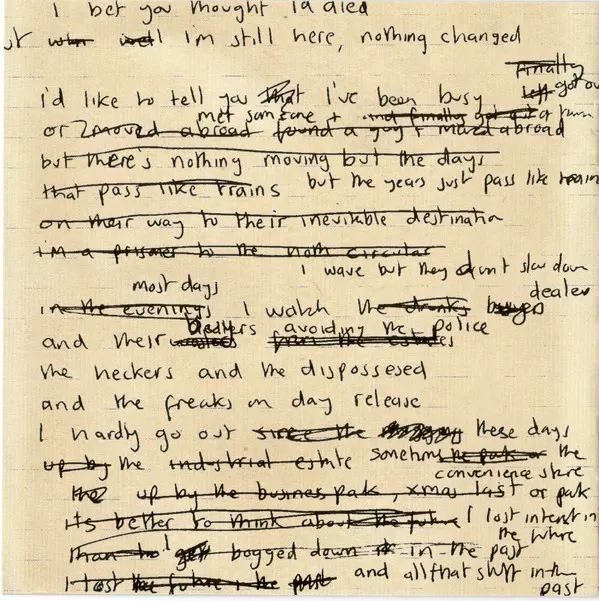 I bet you thought I'd died
but when well I'm still here, nothing changed
finally
i'd like to tell you that I've been busy left got out
met someone + and finally got out of town
or I moved abroad found a guy + moved abroad
but there's nothing moving but the days
that pass like trains but the years just pass like trains
on their way to their inevitable destination
i'm a prisoner to the north circular
I wave but they don't slow down
most days dealer
in the evenings I watch the drunks
dealers avoiding the police
and their from the estates
the heckers and the dispossesed
and the freaks on day release
I hardly go out since the these days
up by the industrial estate sometimes the park or the
convenience store
the up by the business park, xmas last or park
it's better to think about the future I lost interest in
the future
than to get bogged down in the past
I lost the future in the past and all that stuff in the
past